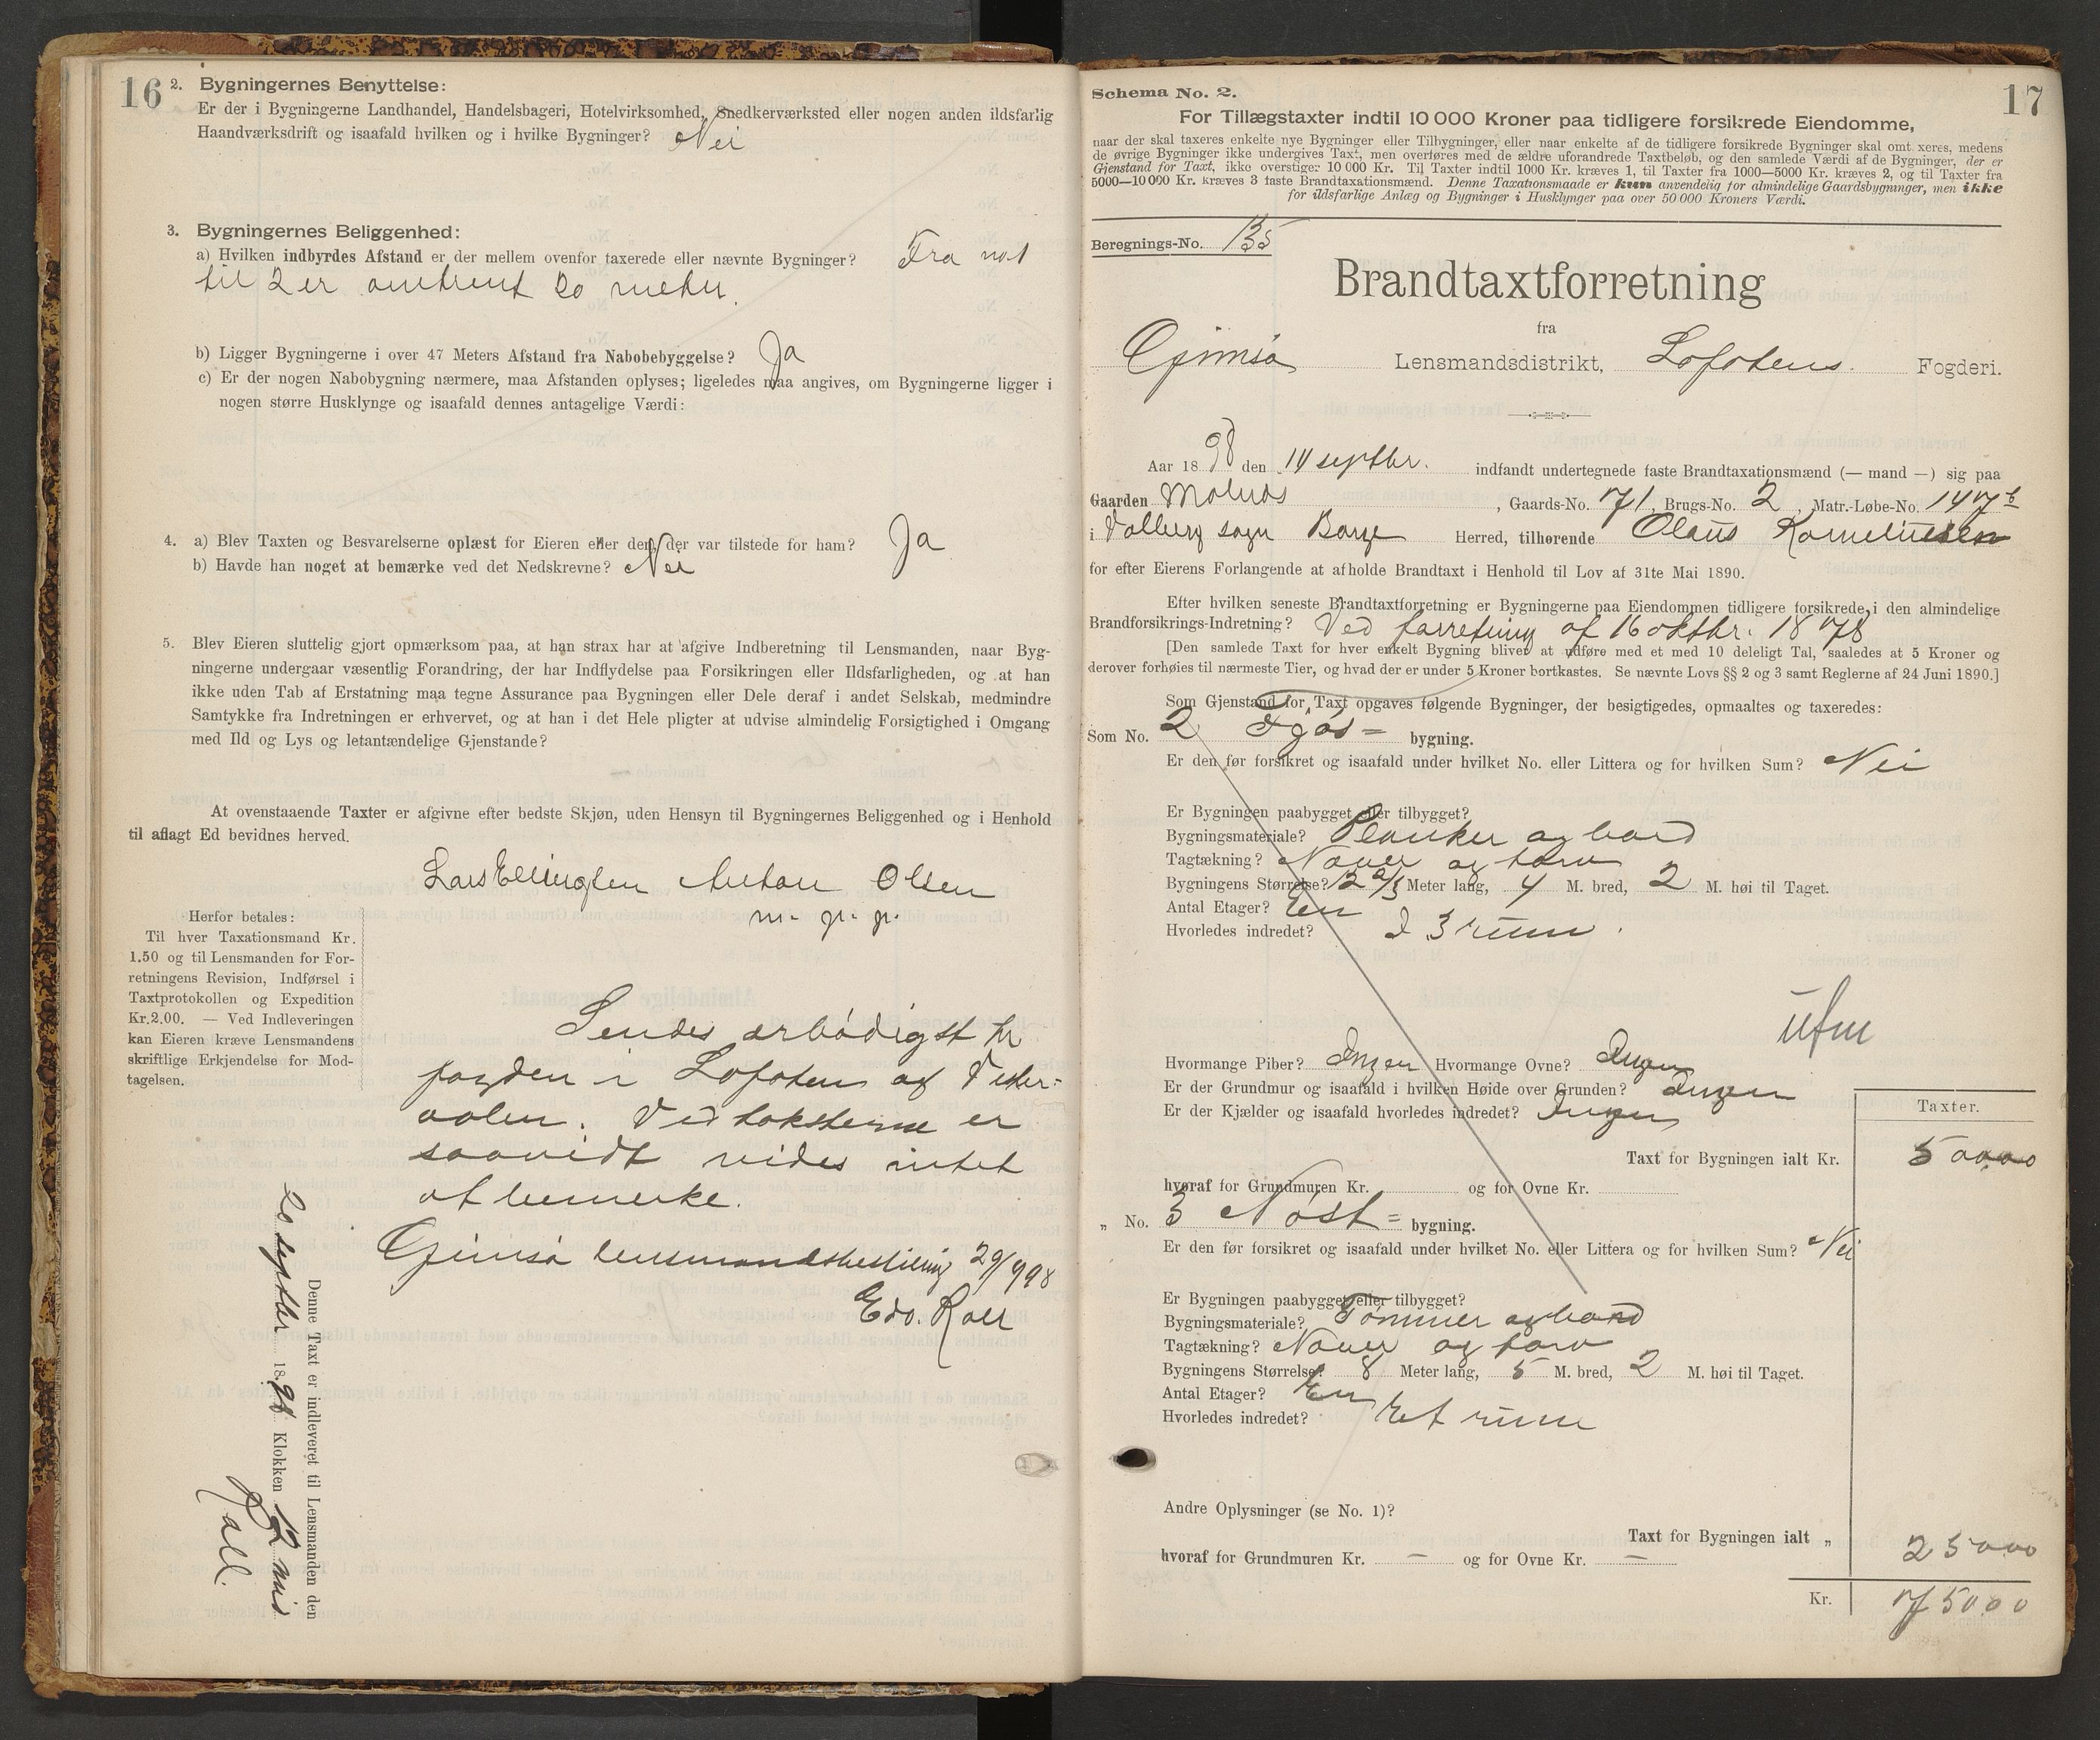 16
2. Bygningernes Benyttelse:
Er der i Bygningerne Landhandel, Handelsbageri, Hotelvirksomhed, Snedkerværksted eller nogen anden ildsfarlig
Haandværksdrift og isaafald hvilken og i hvilke Bygninger? Nei
3. Bygningernes Beliggenhed:
a) Hvilken indbyrdes Afstand er der mellem ovenfor taxerede eller nævnte Bygninger? Fra no 1
til 2 er omtrent 20 meter.
b) Ligger Bygningerne i over 47 Meters Afstand fra Nabobebyggelse? Ja
c) Er der nogen Nabobygning nærmere, maa Afstanden oplyses; ligeledes maa angives, om Bygningerne ligger i
nogen større Husklynge og isaafald dennes antagelige Værdi:
4. a) Blev Taxten og Besvarelserne oplæst for Eieren eller den, der var tilstede for ham? Ja
b) Havde han noget at bemærke ved det Nedskrevne? Nei
5. Blev Eieren sluttelig gjort opmærksom paa, at han strax har at afgive Indberetning til Lensmanden, naar Byg-
ningerne undergaar væsentlig Forandring, der har Indflydelse paa Forsikringen eller Ildsfarligheden, og at han
ikke uden Tab af Erstatning maa tegne Assurance paa Bygningen eller Dele deraf i andet Selskab, medmindre
Samtykke fra Indretningen er erhvervet, og at han i det Hele pligter at udvise almindelig Forsigtighed i Omgang
med Ild og Lys og letantændelige Gjenstande?
At ovenstaaende Taxter er afgivne efter bedste Skjøn, uden Hensyn til Bygningernes Beliggenhed og i Henhold
til aflagt Ed bevidnes herved.
Lars Ellingsen Anton Olsen
m. p. p.
Herfor betales:
Til hver Taxationsmand Kr.
1.50 og til Lensmanden for For-
retningens Revision, Indførsel i
Taxtprotokollen og Expedition
Kr. 2.00. — Ved Indleveringen
kan Eieren kræve Lensmandens
skriftlige Erkjendelse for Mod-
tagelsen.
Sendes ærbødigst hr
fogden i Lofoten og Vester-
aalen. Ved taksterne er
saavidt vides intet
at bemerke.
Gimsø lensmandsbestilling 29/9 98
Edv. Rall
Denne Taxt er indleveret til Lensmanden den
20 septbr 1898 Klokken 12 mid
Rall.
17
Schema No. 2.
For Tillægstaxter indtil 10 000 Kroner paa tidligere forsikrede Eiendomme,
naar der skal taxeres enkelte nye Bygninger eller Tilbygninger, eller naar enkelte af de tidligere forsikrede Bygninger skal omtaxeres, medens
de øvrige Bygninger ikke undergives Taxt, men overføres med de ældre uforandrede Taxtbeløb, og den samlede Værdi af de Bygninger, der er
Gjenstand for Taxt, ikke overstiger 10 000 Kr. Til Taxter indtil 1000 Kr. kræves 1, til Taxter fra 1000—5000 Kr. kræves 2, og til Taxter fra
5000—10 000 Kr. kræves 3 faste Brandtaxationsmænd. Denne Taxationsmaade er kun anvendelig for almindelige Gaardsbygninger, men ikke
for ildsfarlige Anlæg og Bygninger i Husklynger paa over 50 000 Kroners Værdi.
Beregnings-No. 135
Brandtaxtforretning
fra
Gimsø Lensmandsdistrikt, Lofotens Fogderi.
Aar 1898 den 14 septbr. indfandt undertegnede faste Brandtaxationsmænd (— mand —) sig paa
Gaarden Molnøs, Gaards-No. 71, Brugs-No. 2, Matr.-Løbe-No. 147 b
i Valberg sogn Borge Herred, tilhørende Olaus Korneliussen
for efter Eierens Forlangende at afholde Brandtaxt i Henhold til Lov af 31te Mai 1890.
Efter hvilken seneste Brandtaxtforretning er Bygningerne paa Eiendommen tidligere forsikrede i den almindelige
Brandforsikrings-Indretning? Ved forretning af 16 oktbr. 1878
[Den samlede Taxt for hver enkelt Bygning bliver at udføre med et med 10 deleligt Tal, saaledes at 5 Kroner og
derover forhøies til nærmeste Tier, og hvad der er under 5 Kroner bortkastes. Se nævnte Lovs §§ 2 og 3 samt Reglerne af 24 Juni 1890.]
Som Gjenstand for Taxt opgaves følgende Bygninger, der besigtigedes, opmaaltes og taxeredes:
Som No. 2 Fjøs= bygning.
Er den før forsikret og isaafald under hvilket No. eller Littera og for hvilken Sum? Nei
Er Bygningen paabygget eller tilbygget?
Bygningsmateriale? Planker og bord
Tagtækning? Næver og torv
Bygningens Størrelse? 12 2/3 Meter lang, 4 M. bred, 2 M. høi til Taget.
Antal Etager? En
Hvorledes indredet? I 3 rum.
Hvormange Piber? Ingen Hvormange Ovne? Ingen
Er der Grundmur og isaafald i hvilken Høide over Grunden? Ingen
Er der Kjælder og isaafald hvorledes indredet? Ingen
Taxter.
Taxt for Bygningen ialt Kr. 500.00
hvoraf for Grundmuren Kr. og for Ovne Kr.
„ No. 3 Nøst= bygning.
Er den før forsikret og isaafald under hvilket No. eller Littera og for hvilken Sum? Nei
Er Bygningen paabygget eller tilbygget?
Bygningsmateriale? Tømmer og bord
Tagtækning? Næver og torv
Bygningens Størrelse? 8 Meter lang, 5 M. bred, 2 M. høi til Taget.
Antal Etager? En
Hvorledes indredet? Et rum
Andre Oplysninger (se No. 1)?
Taxt for Bygningen ialt „ 250.00
hvoraf for Grundmuren Kr. — og for Ovne Kr. —
Kr. 750.00